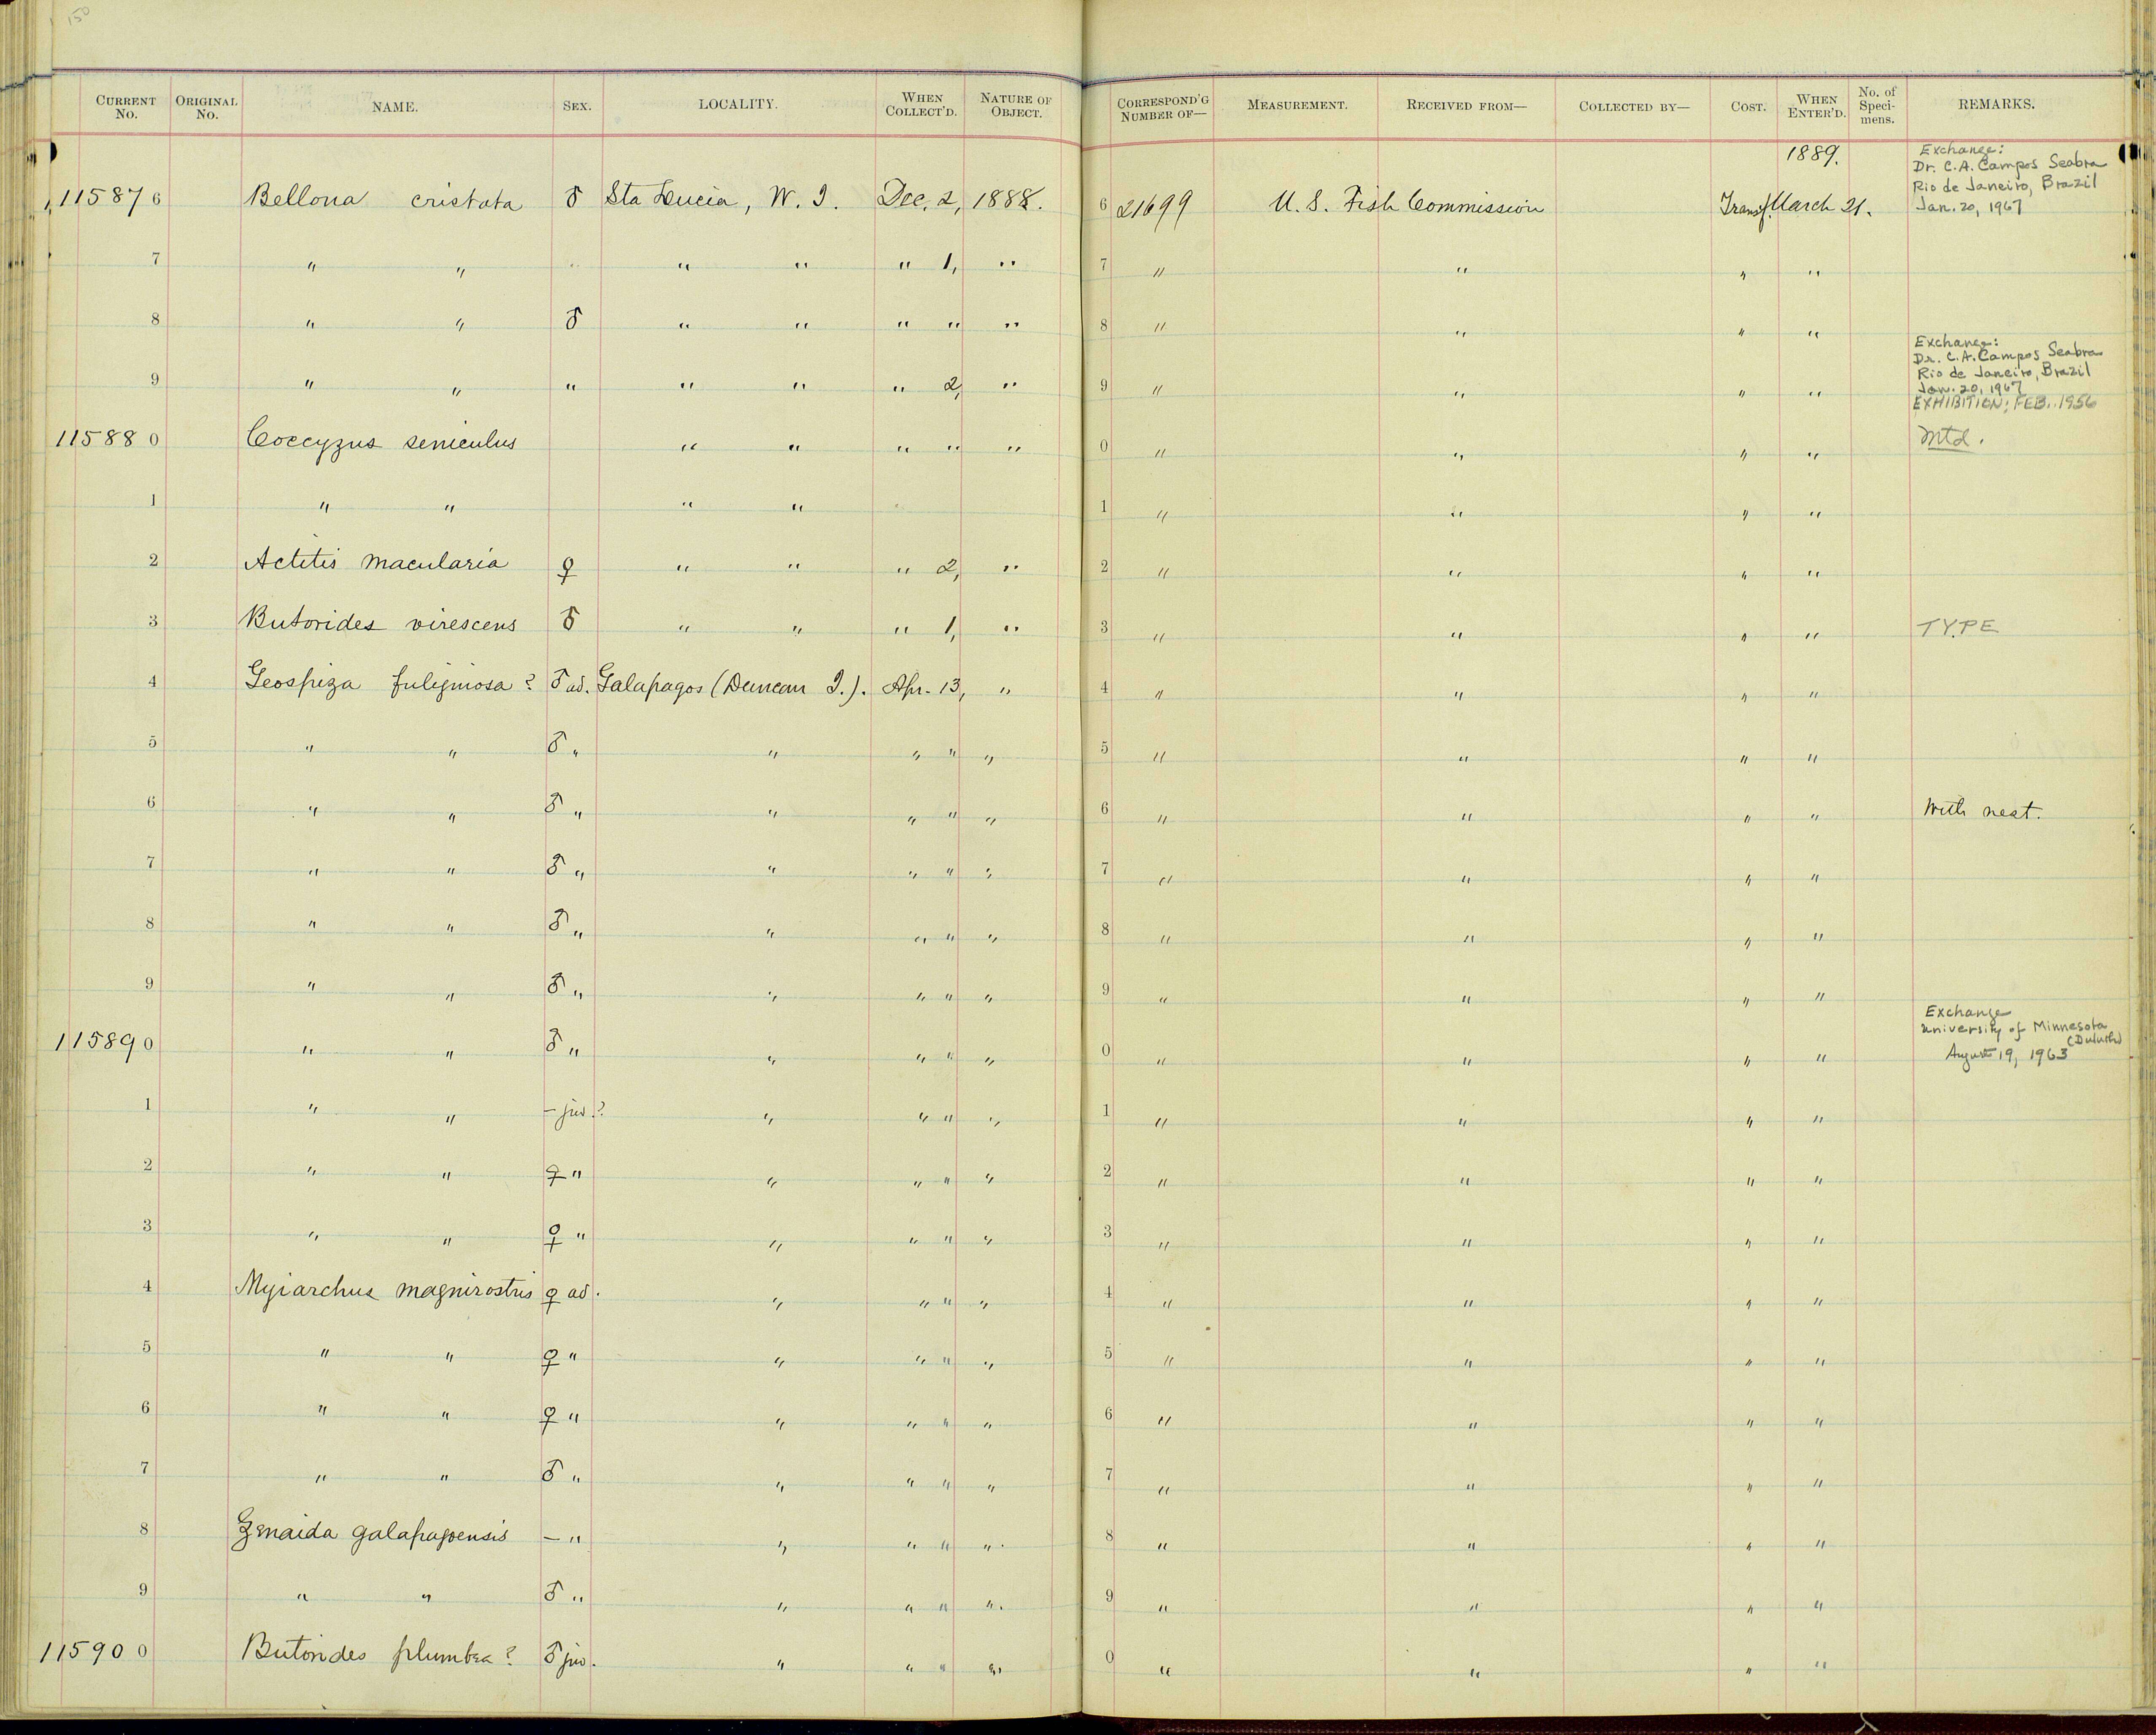 150
CURRENT No. ORIGINAL No. NAME. SEX. LOCALITY. WHEN COLLECT'D. NATURE OF OBJECT. CORRESPOND'G NUMBER OF— MEASUREMENT. RECEIVED FROM— COLLECTED BY— COST. WHEN ENTER'D. No. of Speci-mens. REMARKS.
1889. Exchange:
Dr. C.A. Campos Seabra
Rio de Janeiro, Brazil
Jan. 20, 1967
115876 Bellona cristata ♂ Sta Lucia, W. I. Dec. 2, 1888. 6 21699 U. S. Fish Commission Transf. March 21.
7 " " " " " 1, " 7 " " " "
8 " " ♂ " " " " " 8 " " " "
9 " " " " " " 2, " 9 " " " " Exchange:
Dr. C.A. Campos Seabra
Rio de Janeiro, Brazil
Jan. 20, 1967
EXHIBITION: FEB. 1956
115880 Coccyzus seniculus " " " " " 0 " " " " Mtd.
1 " " " " 1 " " " "
2 Actitis macularia ♀ " " " 2, " 2 " " " "
3 Butorides virescens ♂ " " " 1, " 3 " " " " TYPE
4 Geospiza fuliginosa? ♂ ad. Galapagos (Duncan I.). Apr. 13, " 4 " " " "
5 " " ♂ " " " " " 5 " " " "
6 " " ♂ " " " " " 6 " " " " With nest.
7 " " ♂ " " " " " 7 " " " "
8 " " ♂ " " " " " 8 " " " "
9 " " ♂ " " " " " 9 " " " "
115890 " " ♂ " " " " " 0 " " " " Exchange
University of Minnesota
(Duluth)
August 19, 1963
1 " " – juv.? " " " " 1 " " " "
2 " " ♀ " " " " " 2 " " " "
3 " " ♀ " " " " " 3 " " " "
4 Myiarchus magnirostris ♀ ad. " " " " 4 " " " "
5 " " ♀ " " " " " 5 " " " "
6 " " ♀ " " " " " 6 " " " "
7 " " ♂ " " " " " 7 " " " "
8 Zenaida galapagoensis – " " " " ". 8 " " " "
9 " " ♂ " " " " ". 9 " " " "
115900 Butorides plumbea? ♂ juv. " " " " 0 " " " "